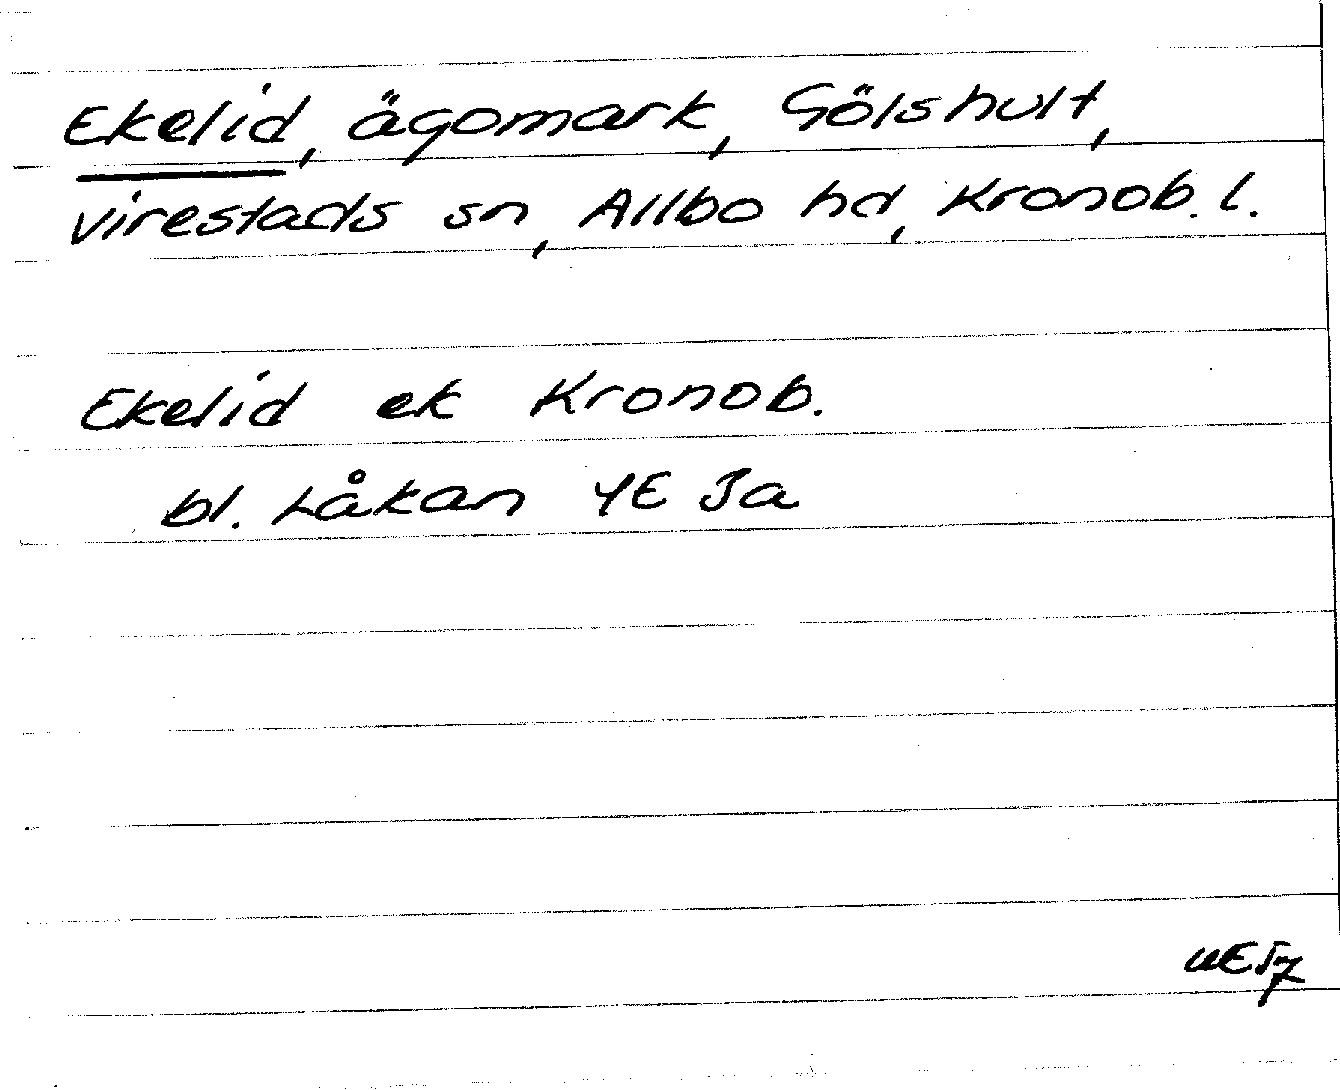 Ekelid, ägomark, Gölshult,
Virestads sn, Allbo hd, Kronob. l.
Ekelid ek Kronob.
bl. Låkan YE Ja